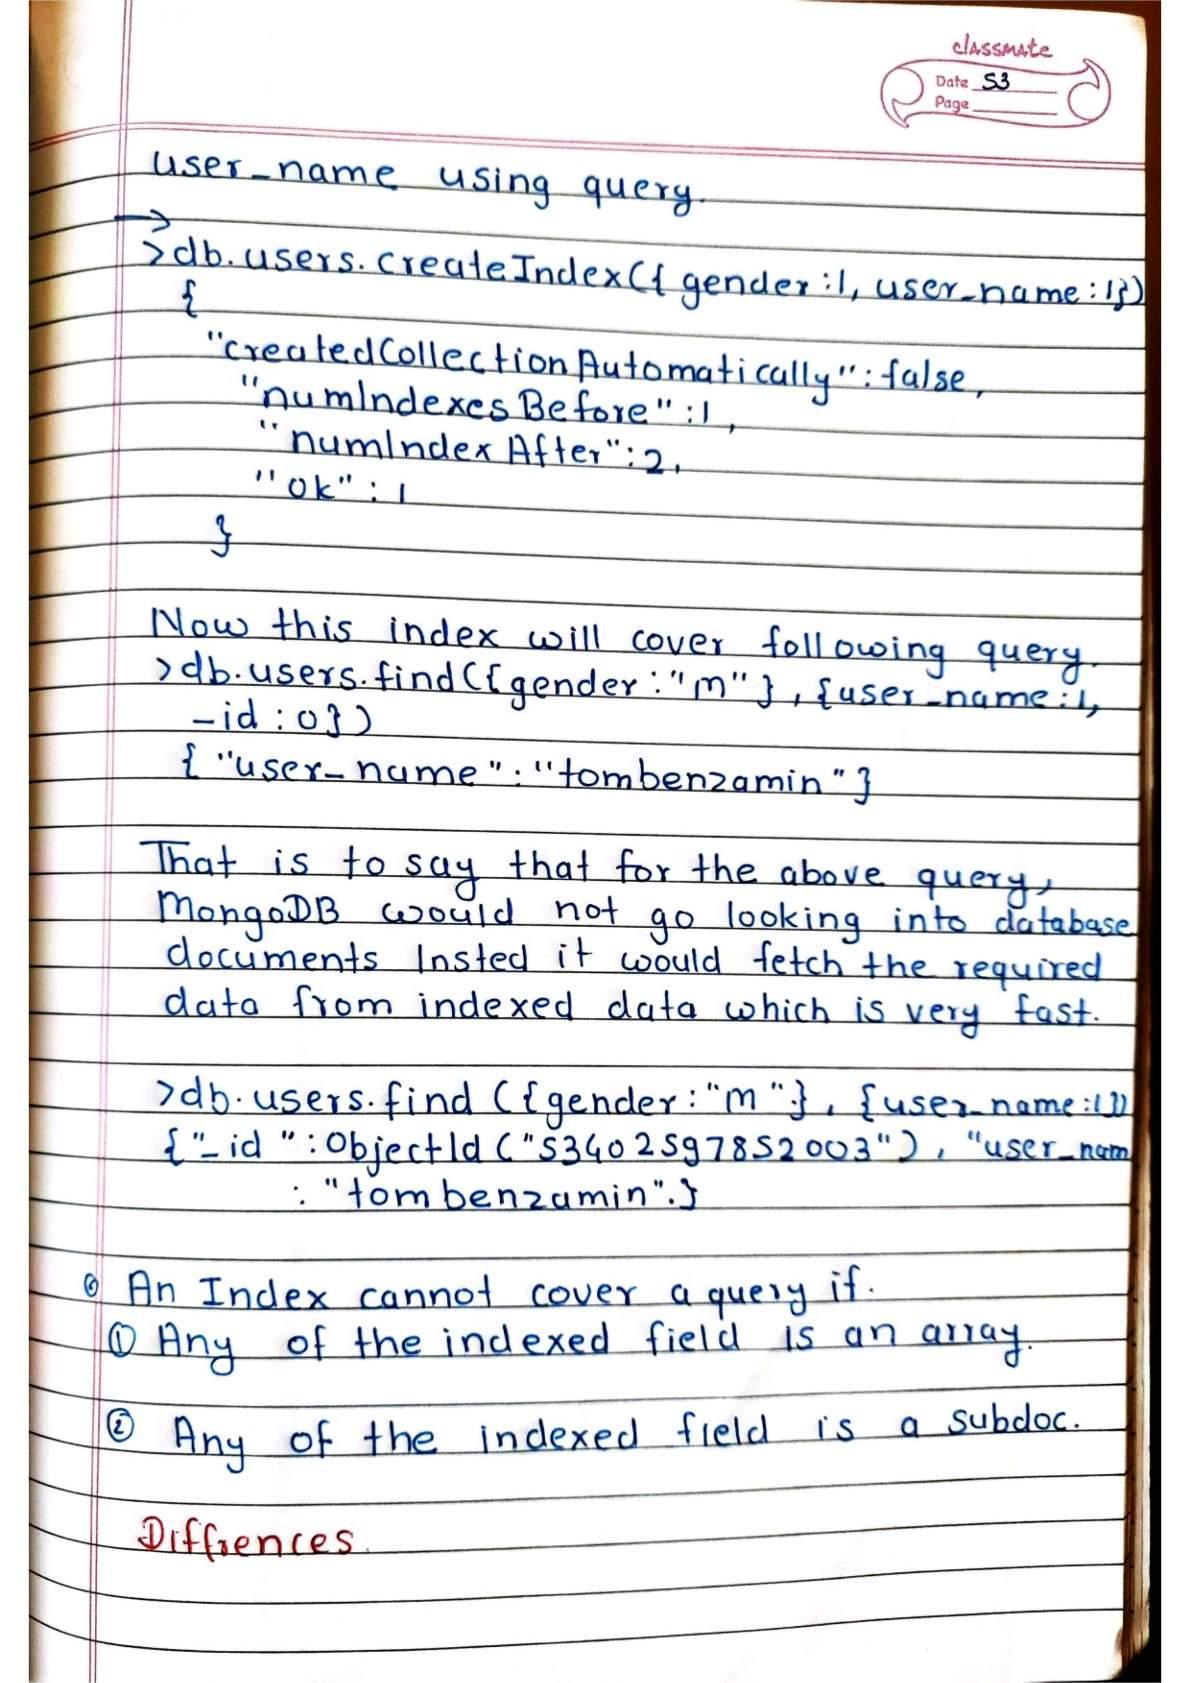 classmate
Date 53
Page
user_name using query.
>db.users.createIndex({gender:1, user_name:1})
{
"createdCollectionAutomatically":false,
"numIndexesBefore":1,
"numIndexAfter":2,
"ok":1
}
Now this index will cover following query.
>db.users.find({gender:"m"},{user_name:1,
_id:0})
{"user_name":"tombenzamin"}
That is to say that for the above query,
MongoDB would not go looking into database
documents Insted it would fetch the required
data from indexed data which is very fast.
>db.users.find({gender:"m"},{user_name:1})
{"_id":ObjectId("53402597852003"), "user_nam
:"tombenzamin".}
An Index cannot cover a query if.
① Any of the indexed field is an array.
② Any of the indexed field is a subdoc.
Diffrences.